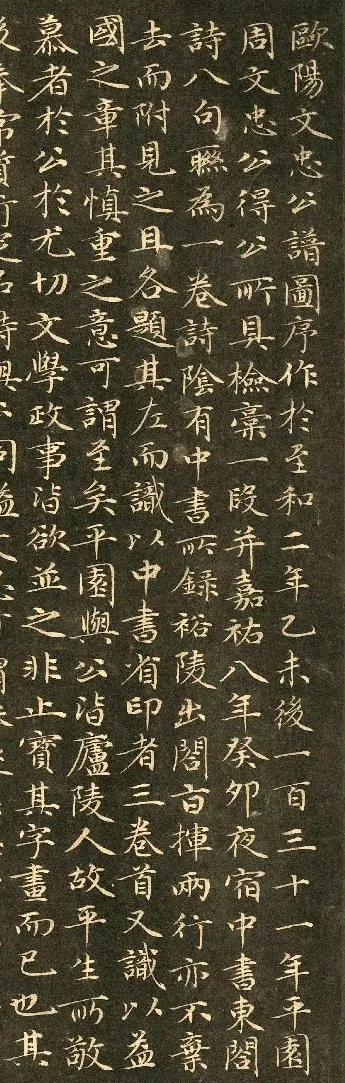 歐陽文忠公譜圖序作於至和二年乙未後一百三十一年平園
周文忠公得公所具檢稾一段并嘉祐八年癸卯夜宿中書東閤
詩八句聮為一卷詩陰有中書所錄裕陵出閤古揮兩行亦不棄
去而附見之且各題其左而識以中書省印者三卷首又識以益
國之章其慎重之意可謂至矣平園與公皆廬陵人故平生所敬
慕者於公於尤切文學政事皆欲並之非止寶其字畫而已也其